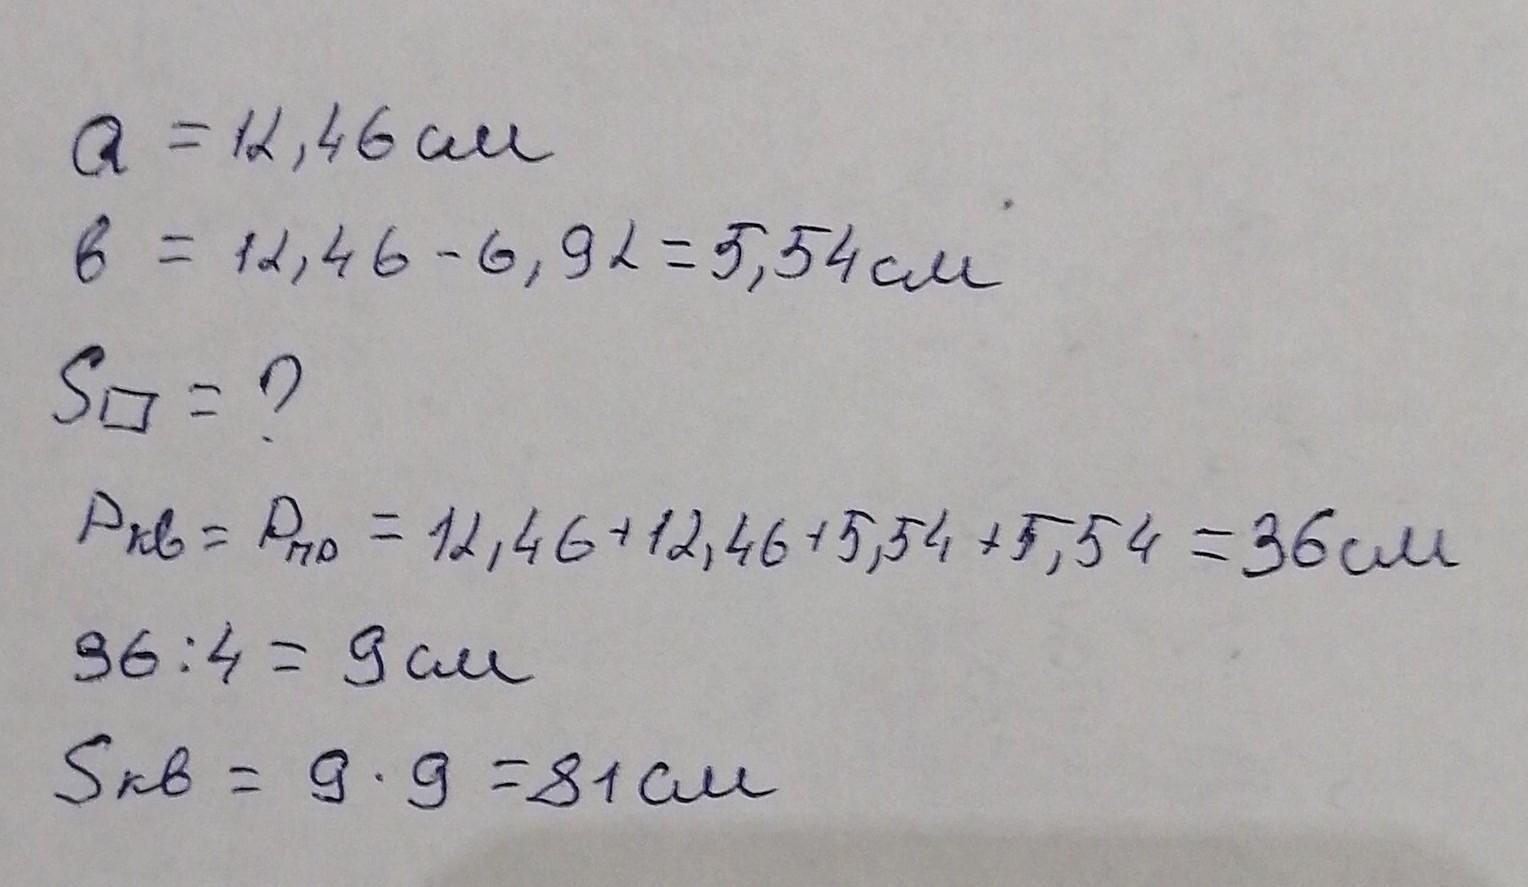 a = 12,46 см
в = 12,46 - 6,92 = 5,54 см
S□ = ?
Pкв = Pпр = 12,46 + 12,46 + 5,54 + 5,54 = 36 см
36 : 4 = 9 см
Sкв = 9 · 9 = 81 см